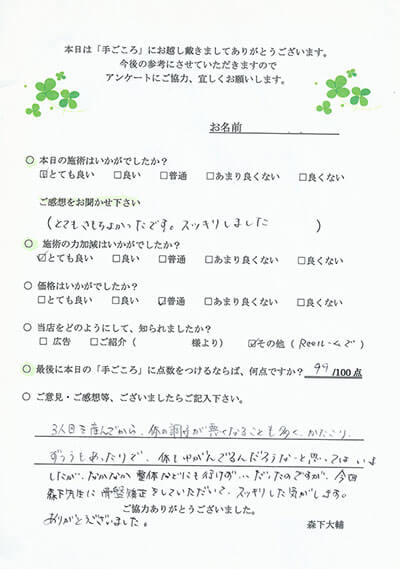 本日は「手ごころ」にお越し戴きましてありがとうございます。
今後の参考にさせていただきますので
アンケートにご協力、宜しくお願いします。
お名前
○ 本日の施術はいかがでしたか？
☑とても良い □良い □普通 □あまり良くない □良くない
ご感想をお聞かせ下さい
(とてもきもちよかったです。スッキリしました )
○ 施術の力加減はいかがでしたか？
☑とても良い □良い □普通 □あまり良くない □良くない
○ 価格はいかがでしたか？
□とても良い □良い ☑普通 □あまり良くない □良くない
○ 当店をどのようにして、知られましたか？
□ 広告 □ご紹介（ 様より） ☑その他（ Reルームで ）
○ 最後に本日の「手ごころ」に点数をつけるならば、何点ですか？ 99 /100点
○ ご意見・ご感想等、ございましたらご記入下さい。
3人目を産んでから、体の調子が悪くなることも多く、かたこり、
ずつうもあったりで、体もゆがんでるんだろうなーと思ってはいま
したが、なかなか整体などにも行けず、、だったのですが、今回
森下先生に骨盤矯正をしていただいて、スッキリした気がします。
ありがとうございました。
ご協力ありがとうございました。
森下大輔